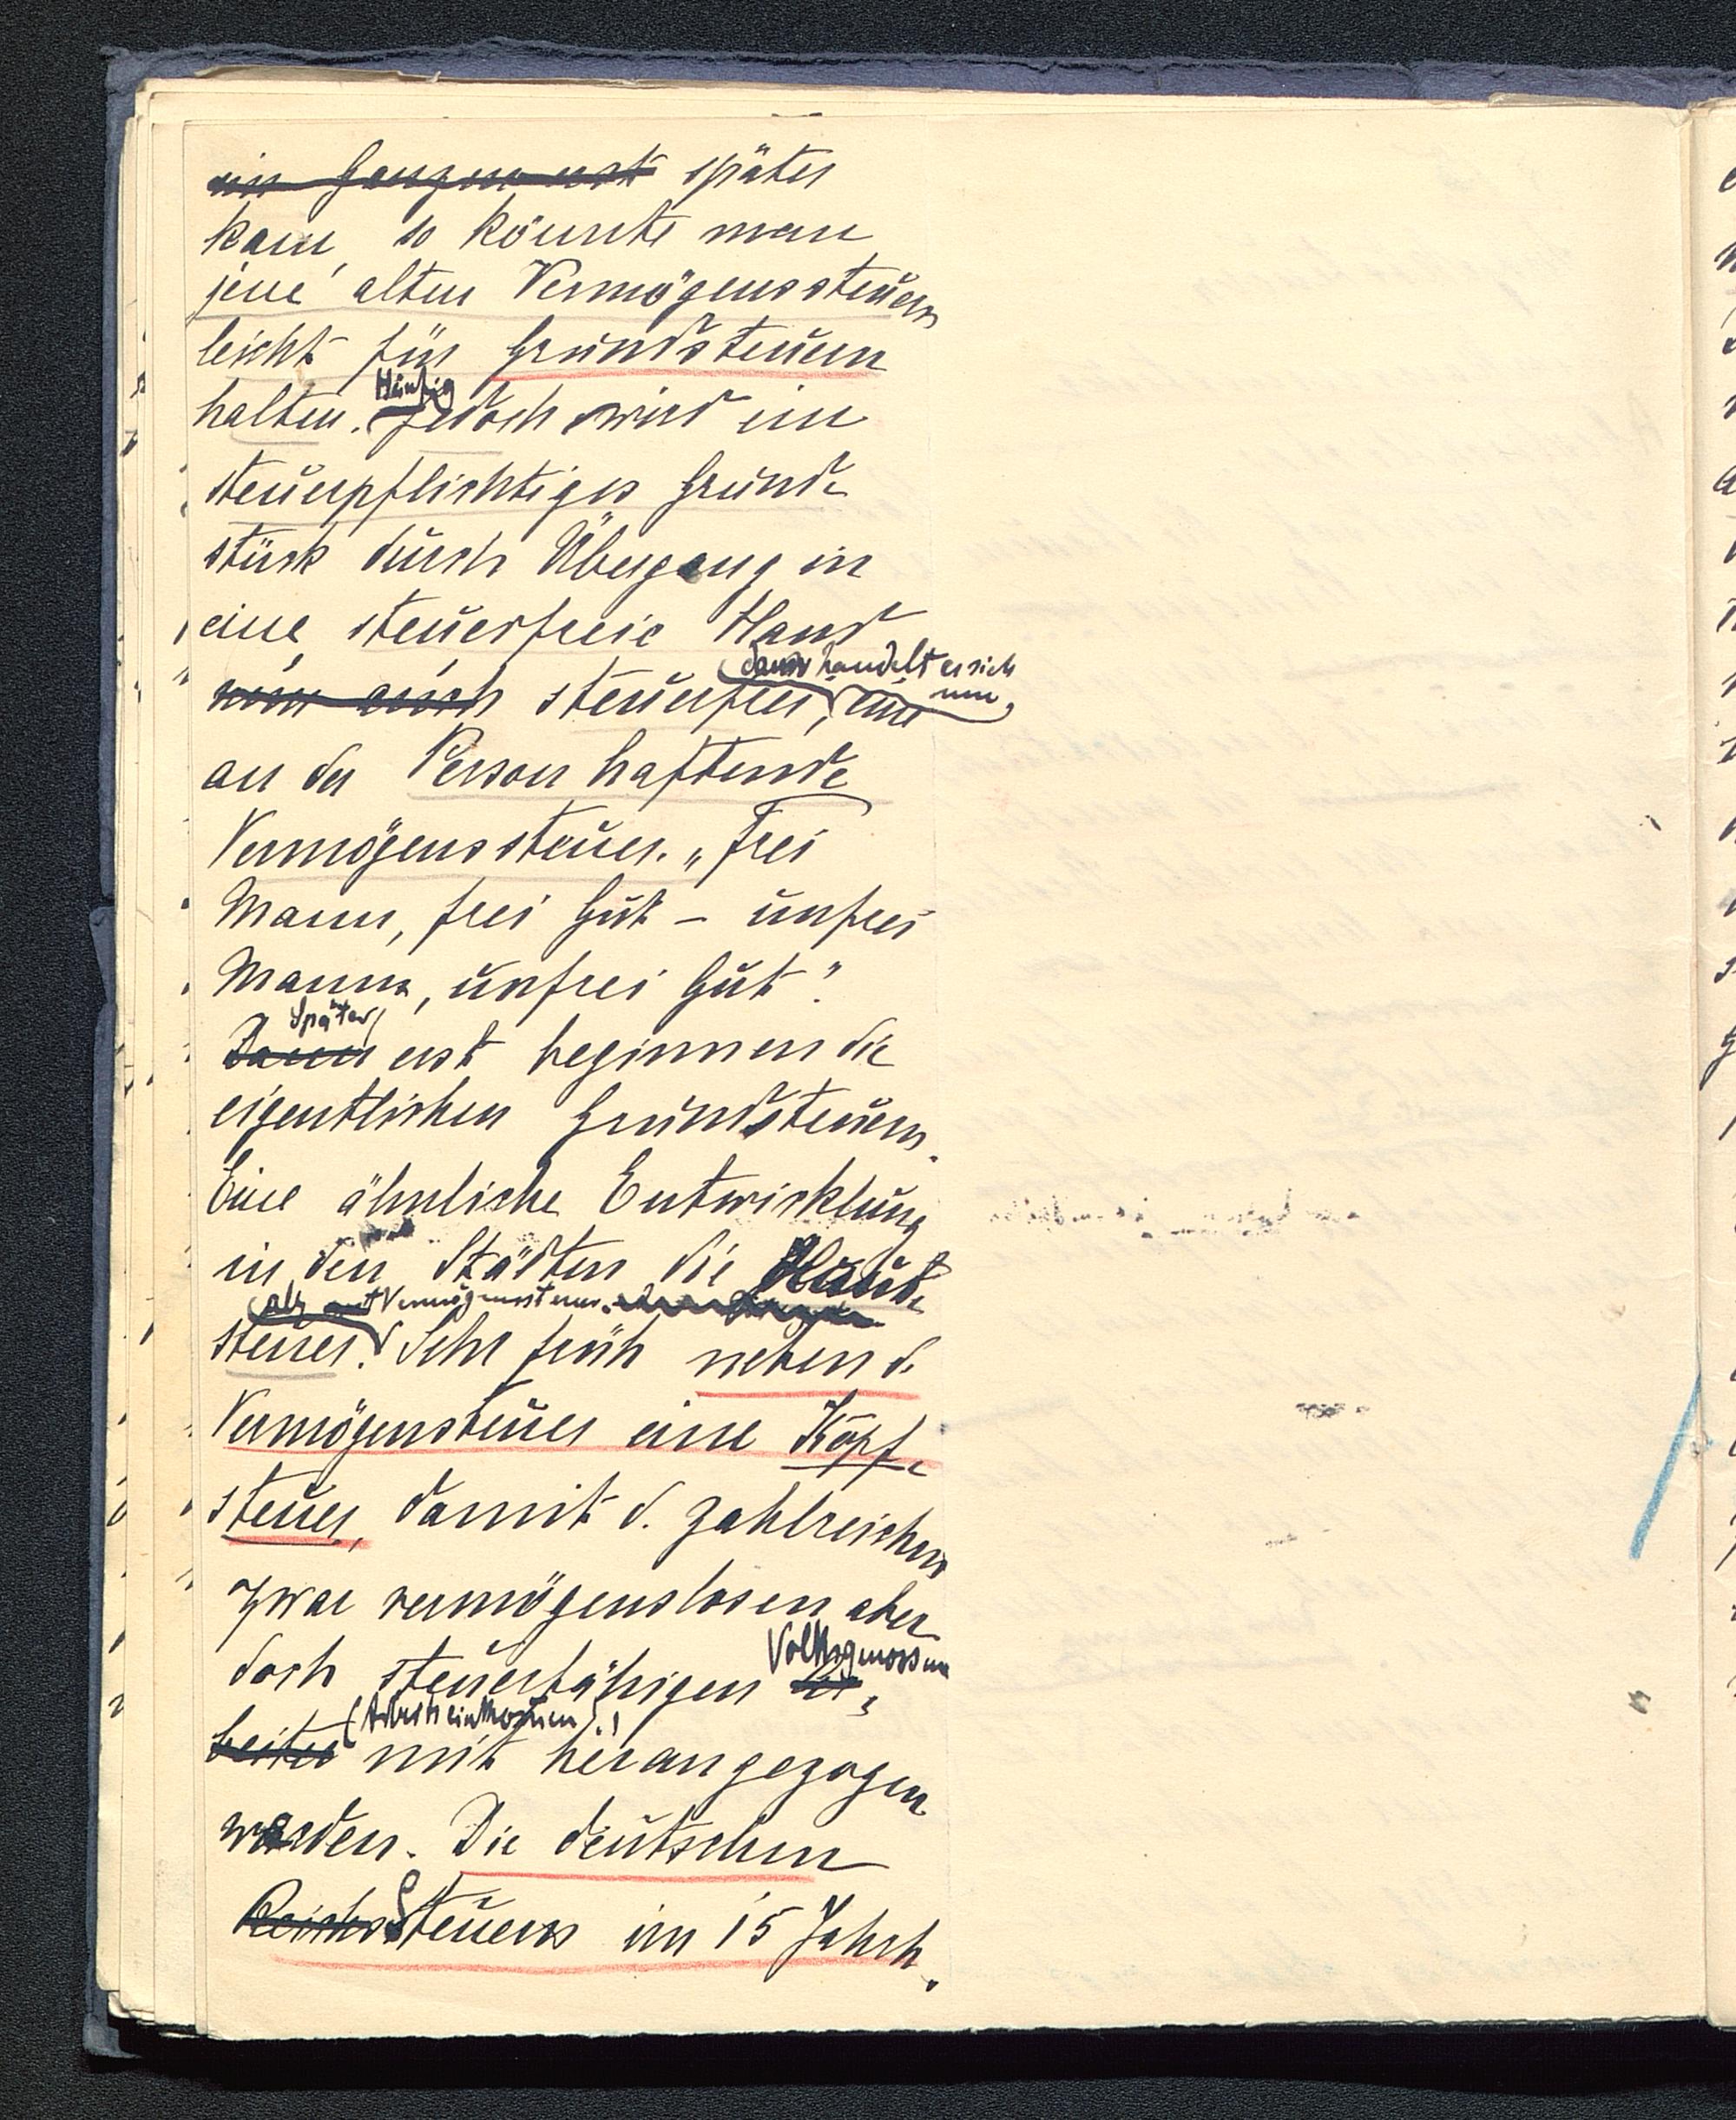 später
kam, so könnte man
jene alten Vermögenssteuern
leicht für Grundsteuern
halten. Häufig jedoch wird ein
steuerpflichtiges Grund-
stück durch Übergang in
eine steuerfreie Hand
steuerfrei, dann handelt es sich um eine
an der Person haftende
Vermögenssteuer. „Frei
Mann, frei Gut – unfrei
Mann, unfrei Gut".
Später erst beginnen die
eigentlichen Grundsteuern.
Eine ähnliche Entwicklung
in den Städten die Haus-
als Vermögenssteuer.
steuer. Sehr früh neben d.
Vermögensteuer eine Kopf-
steuer, damit d. zahlreichen
zwar vermögenslosen aber
doch steuerfähigen Volksgenossen
(Arbeitseinkommen!)
mit herangezogen
werden. Die deutschen
Steuern im 15 Jahrh.